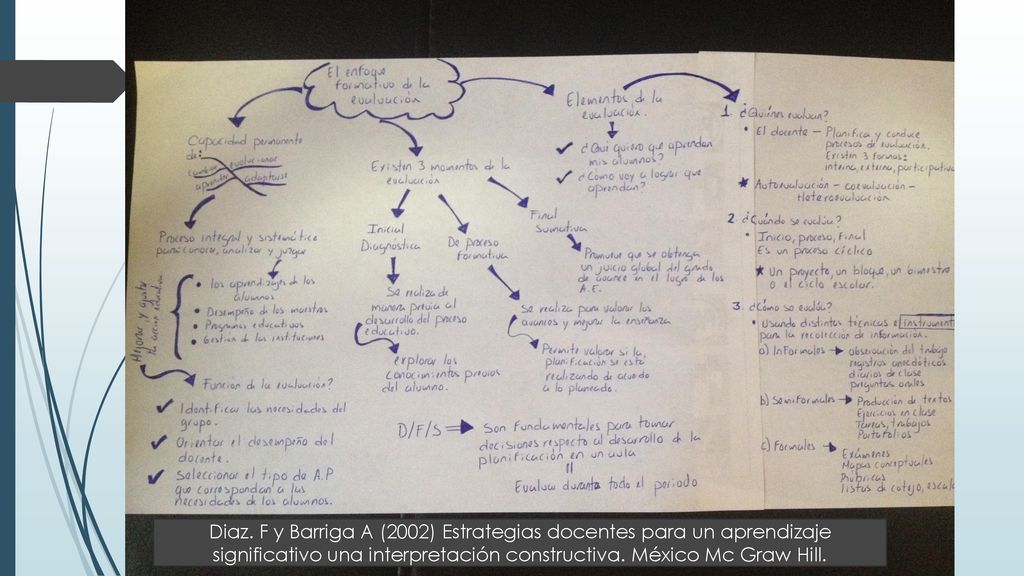 El enfoque
formativo de la
evaluación
Capacidad permanente
de:
cambiar evolucionar
aprender adaptarse
Proceso integral y sistemático
para conocer, analizar y juzgar
Mejorar y ajustar
la acción educativa
• los aprendizajes de los
alumnos
• Desempeño de los maestros
• Programas educativos
• Gestion de las instituciones
Funcion de la evaluación?
✓ Identificar las necesidades del
grupo.
✓ Orientar el desempeño del
docente.
✓ Seleccionar el tipo de A.P
que correspondan a las
necesidades de los alumnos.
Existen 3 momentos de la
evaluación
Inicial
Diagnóstica
Se realiza de
manera previa al
desarrollo del proceso
educativo.
explorar los
conocimientos previos
del alumno.
De proceso
Formativa
Se realiza para valorar los
avances y mejorar la enseñanza
Permite valorar si la
planificación se está
realizando de acuerdo
a lo planeado.
Final
Sumativa
Promueve que se obtenga
un juicio global del grado
de avance en el logro de los
A.E.
D/F/S ⇒ Son fundamentales para tomar
decisiones respecto al desarrollo de la
planificación en un aula
Evaluar durante todo el periodo
Elementos de la
evaluación.
✓ ¿Qué quiero que aprendan
mis alumnos?
✓ ¿Cómo voy a lograr que
aprendan?
1 ¿Quiénes evaluan?
• El docente — Planifica y conduce
procesos de evaluación.
Existen 3 formas:
interna, externa, participativa
★ Autoevaluación — coevaluación —
Heteroevaluación
2 ¿Cuándo se evalúa?
• Inicio, proceso, Final
Es un proceso cíclico
★ Un proyecto, un bloque, un bimestre
o el ciclo escolar.
3. ¿Cómo se evalúa?
• Usando distintas técnicas e instrument
para la recolección de información.
a) Informales → observación del trabajo
registros anecdóticos
diarios de clase
preguntas orales
b) Semiformales → Producción de textos
Ejercicios en clase
Tareas, trabajos
Portafolios
c) Formales → Exámenes
Mapas conceptuales
Rúbricas
listas de cotejo, escala
Diaz. F y Barriga A (2002) Estrategias docentes para un aprendizaje
significativo una interpretación constructiva. México Mc Graw Hill.